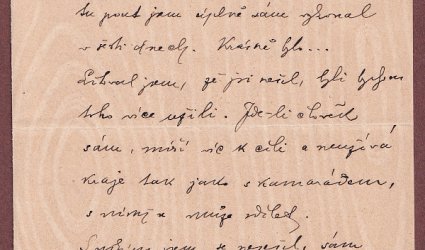 tu pouť jem úplně sám vykonal
v šesti dnech. Krásně bylo...
Litoval jsem, že jsi nešel, byli bychom
toho více užili. Jde-li člověk
sám, míří víc k cíli a neužívá
kraje tak jako s kamarádem,
s nímž se může sdílet.
jsem se nepsal, sám